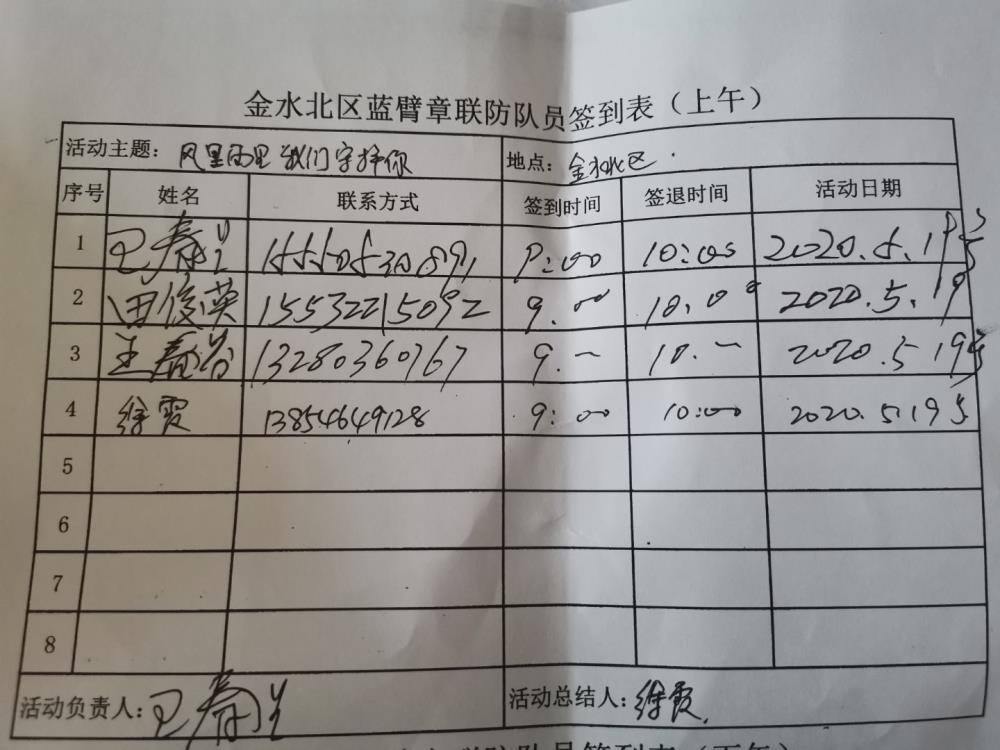 金水北区蓝臂章联防队员签到表（上午）
活动主题：风里雨里 我们守护你 地点：金水北区
序号 姓名 联系方式 签到时间 签退时间 活动日期
1 10:00 2020.5.19
2 田俊英 15532215092 9.00 10.00 2020.5.19
3 13280360767 9.一 10.一 2020.5.19
4 徐霞 13854649128 9:00 10:00 2020.5.19
5
6
7
8
活动负责人： 活动总结人：徐霞